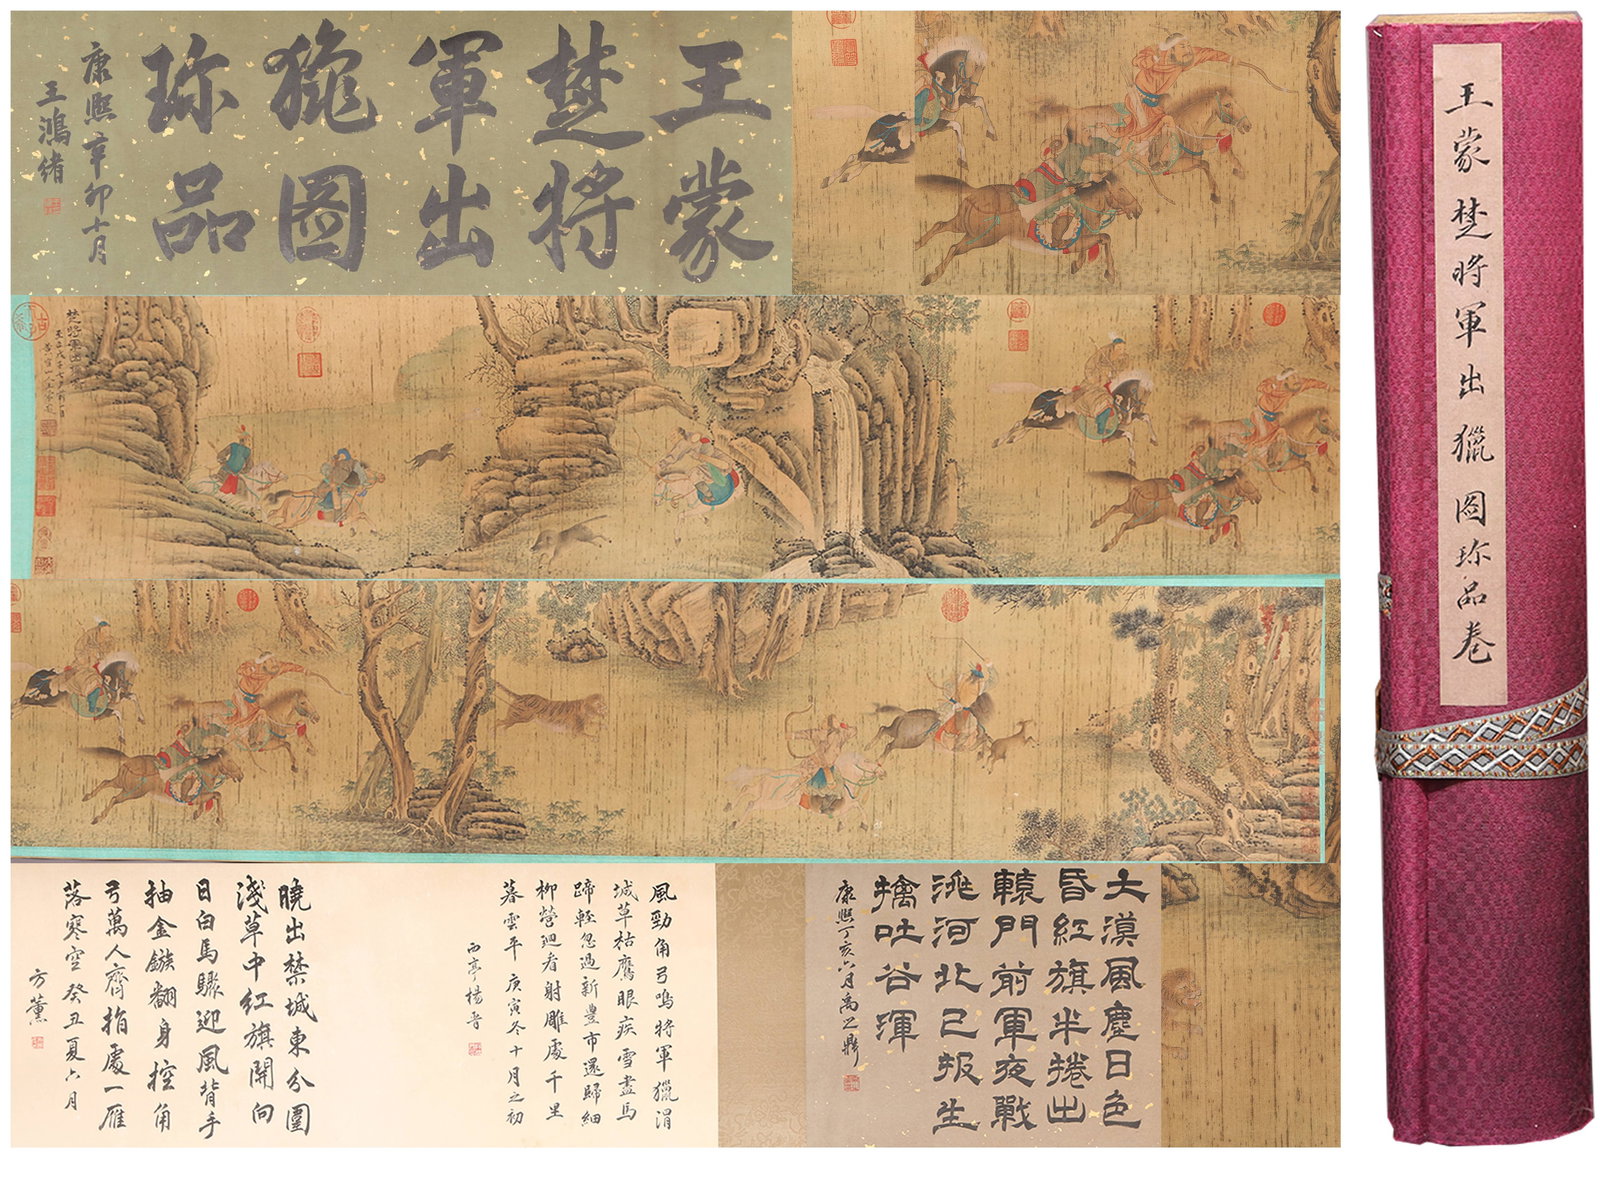 王蒙
楚將
軍出
獵圖
珎品
康熙辛卯十月
王鴻緒
王蒙楚將軍出獵圖珎品卷
楚將軍出
大漠風塵日色
昏紅旗半捲出
轅門前軍夜戰
洮河北已报生
擒吐谷渾
康熙丁亥六月禹之鼎
風勁角弓鳴將軍獵渭
城草枯鷹眼疾雪盡馬
蹄輕忽過新豐市還歸細
柳營迴看射雕處千里
暮雲平 庚寅冬十月之初
西亭楊晋
曉出禁城東分圍
淺草中紅旗開向
日白馬驟迎風背手
抽金鏃翻身控角
弓萬人齊指處一雁
落寒空癸丑夏六月
方薰